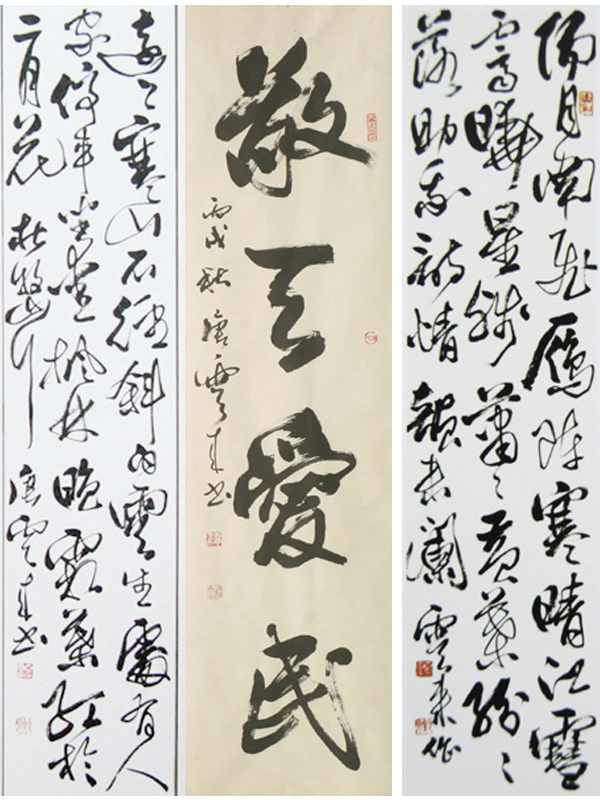 陽月南飛雁陣寒晴江雪
霽星殘蕭〻黃葉紛〻
落助我詩情韻瀾 雲來作
敬天愛民
丙戌秋唐雲來書
遠上寒山石徑斜白雲生處有人
家停車坐愛楓林晚霜葉紅於
二月花 杜牧山行 唐雲來書